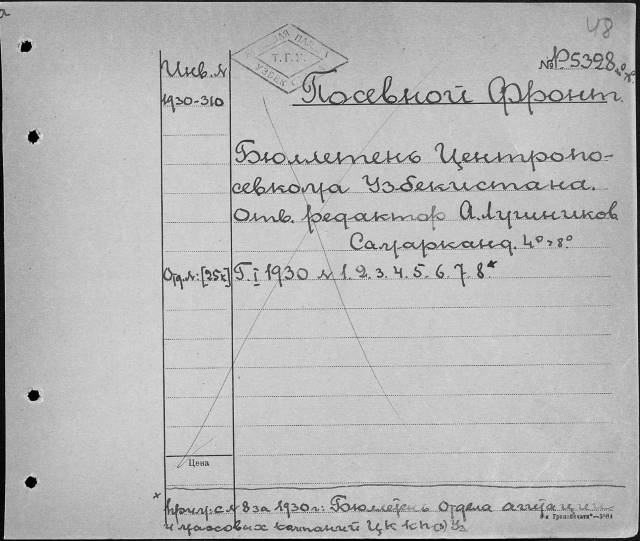 48
№ P5328
Инв. №
1930-310
Т.Г.У.
УЗБЕК
Посевной Фронт.
Бюллетень Центропо-
севкома Узбекистана.
Отв. редактор А. Лушников
Самарканд. 4° > 8°
Отд. №: [25к] Г. I 1930 № 1. 2. 3. 4. 5. 6. 7. 8*
Цена
* прим: с № 8 за 1930 г: Бюллетень Отдела агитации
и массовых кампаний ЦК КП(б) Уз